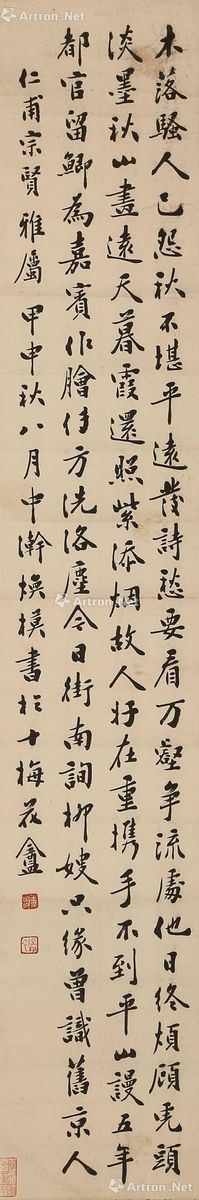 木落騷人已怨秋不堪平遠發詩愁要看万壑爭流處他日終煩顧虎頭
淡墨秋山畫遠天暮霞還照紫添烟故人好在重攜手不到平山謾五年
都官留鯽為嘉賓作膾傳方洗洛塵今日街南詢柳嫂只緣曾識舊京人
仁甫宗賢雅屬 甲申秋八月中澣 煥模書於十梅花盦
Artron.Net
Artron.Net
Artron.Net
Artron.Net